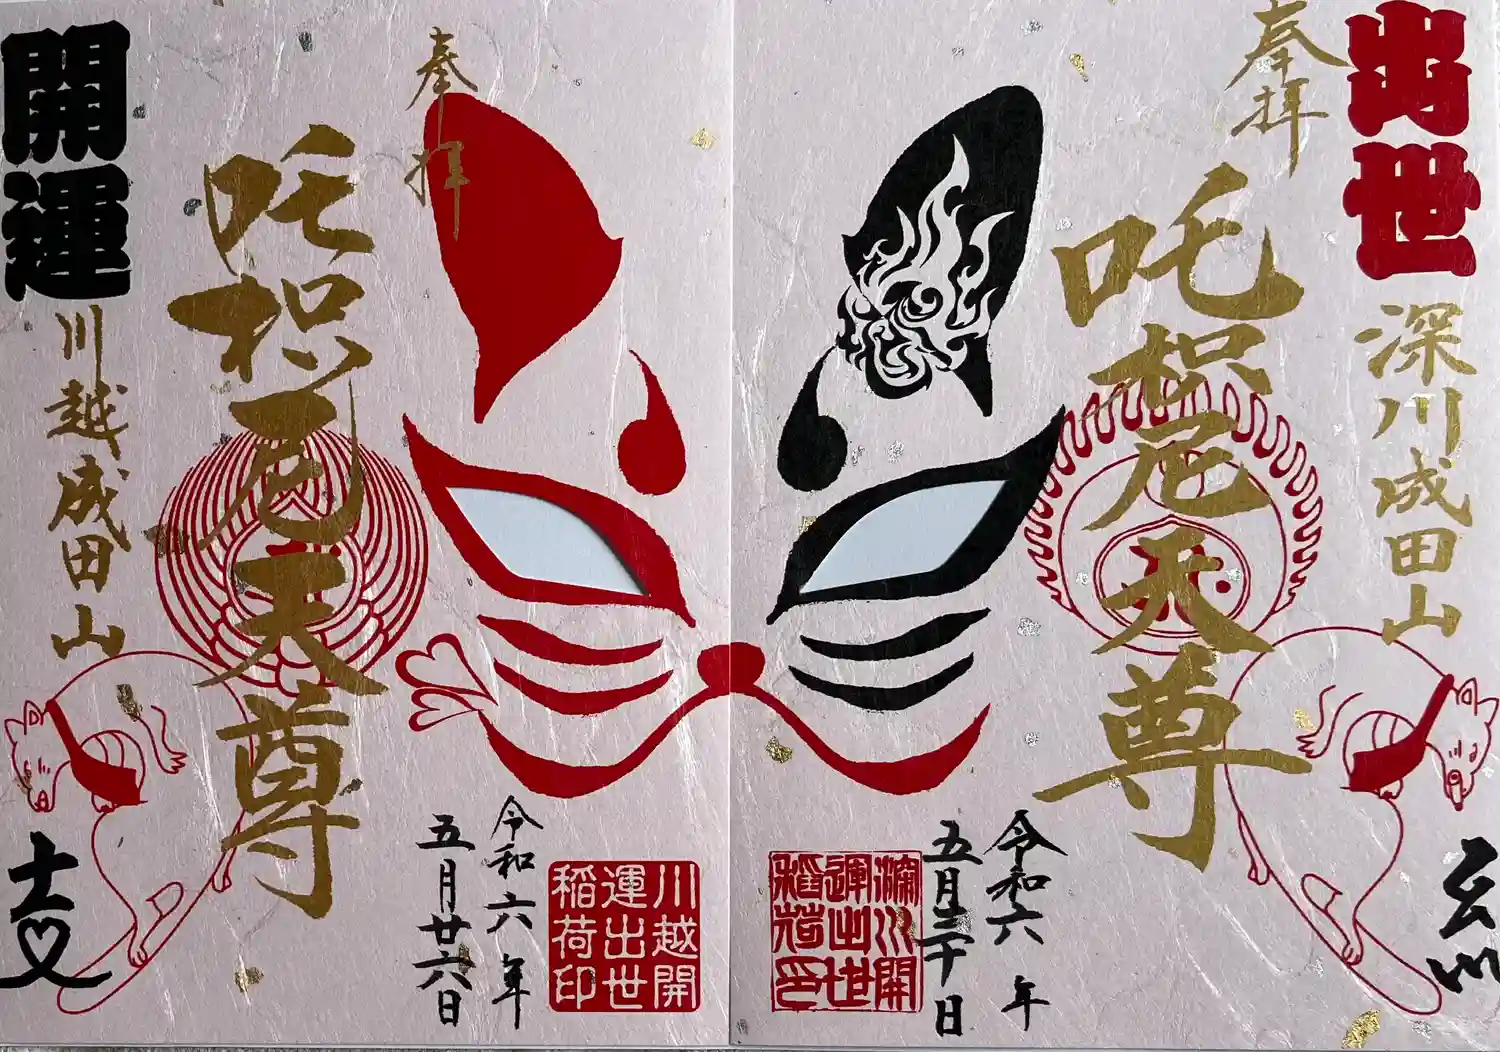 出世
奉拝
深川成田山
吒枳尼天尊
令和六年
五月三十日
深川開
運出世
稲荷印
玄川
奉拝
吒枳尼天尊
開運
川越成田山
令和六年
五月廿六日
川越開
運出世
稲荷印